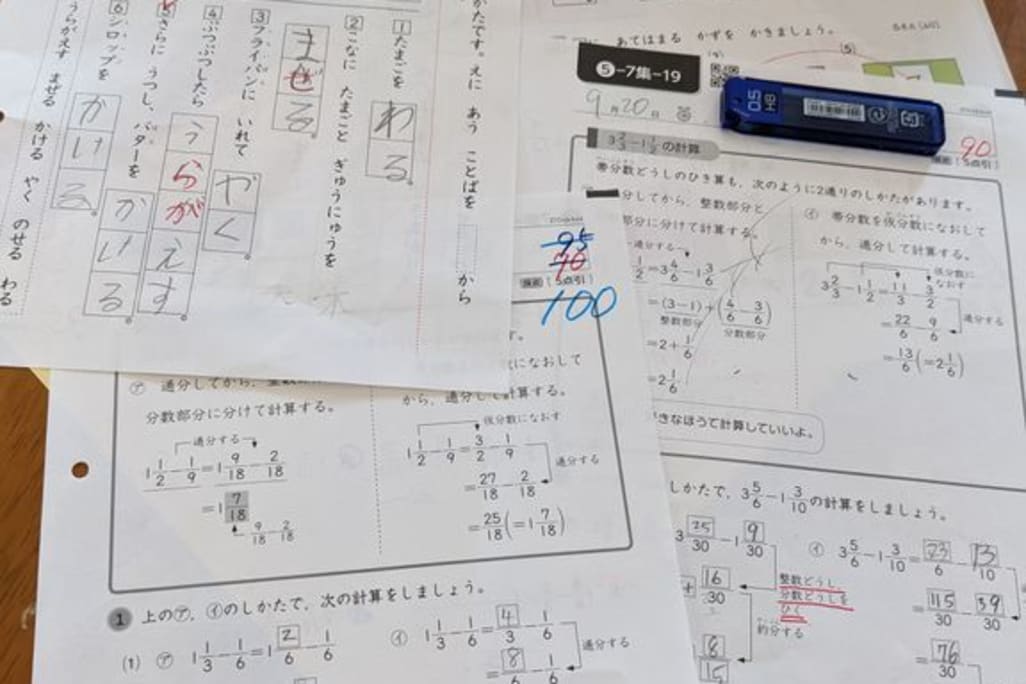 かたです。えに あう ことばを から
1 たまごを
わる
2 こなに たまごと ぎゅうにゅうを
まぜる
3 フライパンに いれて
やく
4 ぷつぷつしたら
うらがえす
5 さらに うつし、バターを
かける
6 シロップを
かける
うらがえす まぜる かける やく のせる わる
あてはまる かずを かきましょう。
(5)
5-7集-19
9月20日
0.5
HB
90
(5点引)
3 2/3 - 1 1/2 の計算
帯分数どうしのひき算も、次のように2通りのしかたがあります。
分してから、整数部分と
部分に分けて計算する。
通分する
1/2 = 3 4/6 - 1 3/6
= (3-1) + (4/6 - 3/6)
整数部分 分数部分
= 2 + 1/6
= 2 1/6
イ 帯分数を仮分数になおして
から、通分して計算する。
仮分数になおす
3 2/3 - 1 1/2 = 11/3 - 3/2
通分する
= 22/6 - 9/6
= 13/6 (= 2 1/6)
きなほうで計算していいよ。
しかたで、3 5/6 - 1 3/10 の計算をしましょう。
3 25/30 - 1 9/30
+ 16/30
整数どうし、
分数どうしを
ひく
約分する
8/15
イ 3 5/6 - 1 3/10 = 23/6 - 13/10
= 115/30 - 39/30
= 76/30
95
90
(5点引)
100
ア 通分してから、整数部
分数部分に分けて計算する。
通分する
1 1/2 - 1/9 = 1 9/18 - 2/18
= 1 7/18
9/18 - 2/18
になおして
から、通分して計算する。
仮分数になおす
1 1/2 - 1/9 = 3/2 - 1/9
通分する
= 27/18 - 2/18
= 25/18 (= 1 7/18)
1 上のア、イのしかたで、次の計算をしましょう。
(1) ア 1 1/3 - 1/6 = 1 2/6 - 1/6
イ 1 1/3 - 1/6 = 4/3 - 1/6
通分する
= 8/6 - 1/6